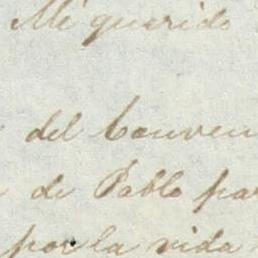 Mi querido
del Conven
de Pablo pa
por la vida